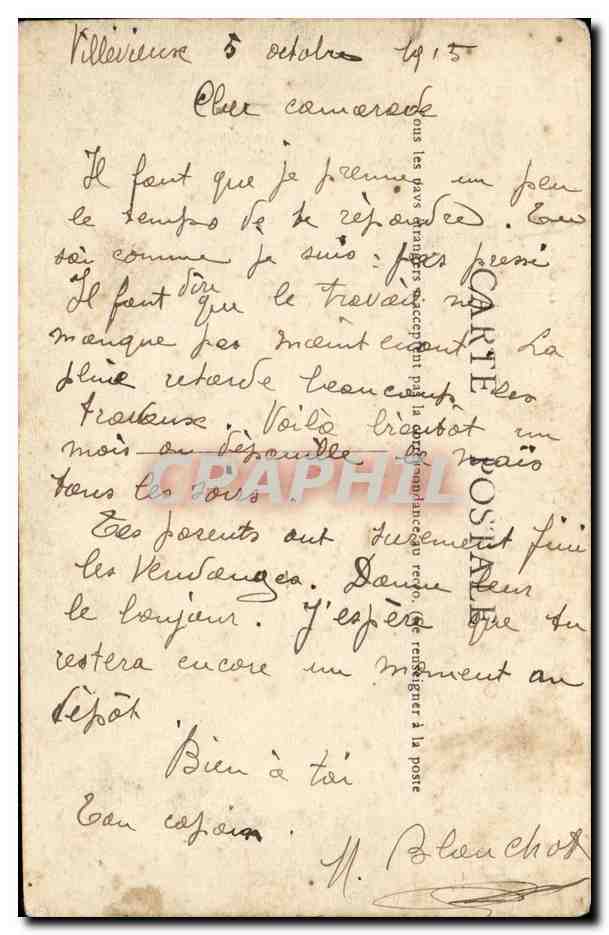 Villevieux 5 octobre 1915
Cher camarade
Il faut que je prenne un peu
le temps de te répondre. Tu
comme je suis : pas pressé
Il faut dire que le travail ne
manque pas maintenant. La
pluie retarde beaucoup les
travaux. Voilà bientôt un
mois on dépouille le maïs
tous les soirs.
Tes parents ont surement fini
les vendanges. Donne leur
le bonjour. J'espère que tu
restera encore un moment au
dépôt.
Bien à toi
Ton copain.
M. Blanchot
CARTE POSTALE
Tous les pays étrangers n'acceptent pas la correspondance au recto. (Se renseigner à la poste
CPAPHIL